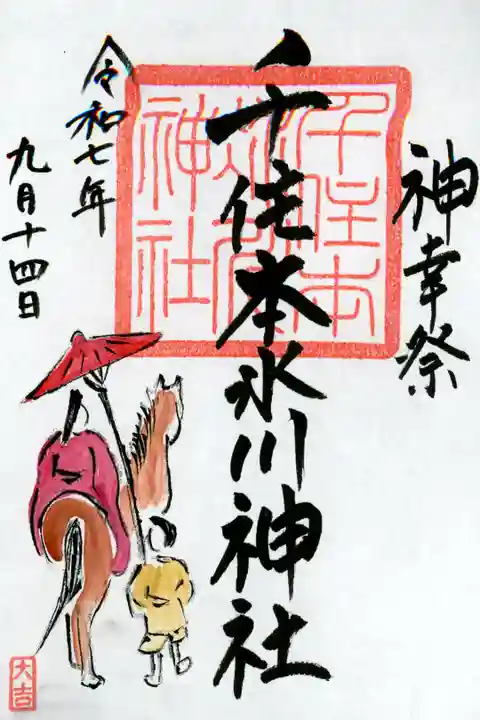 神幸祭
千住本氷川神社
令和七年
九月十四日
千住本
氷川
神社
大吉